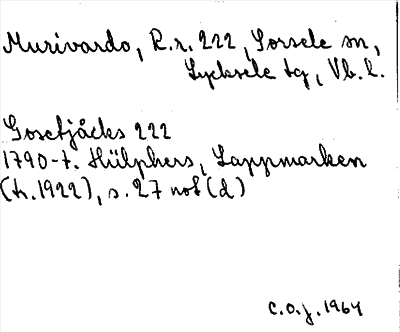 Murivardo, R.r. 222, Sorsele sn,
Lycksele tg, Vb. l.
Gosetjåcks 222
1790-t. Hülphers, Lappmarken
(tr. 1922), s. 27 not (d)
C.O.J. 1964